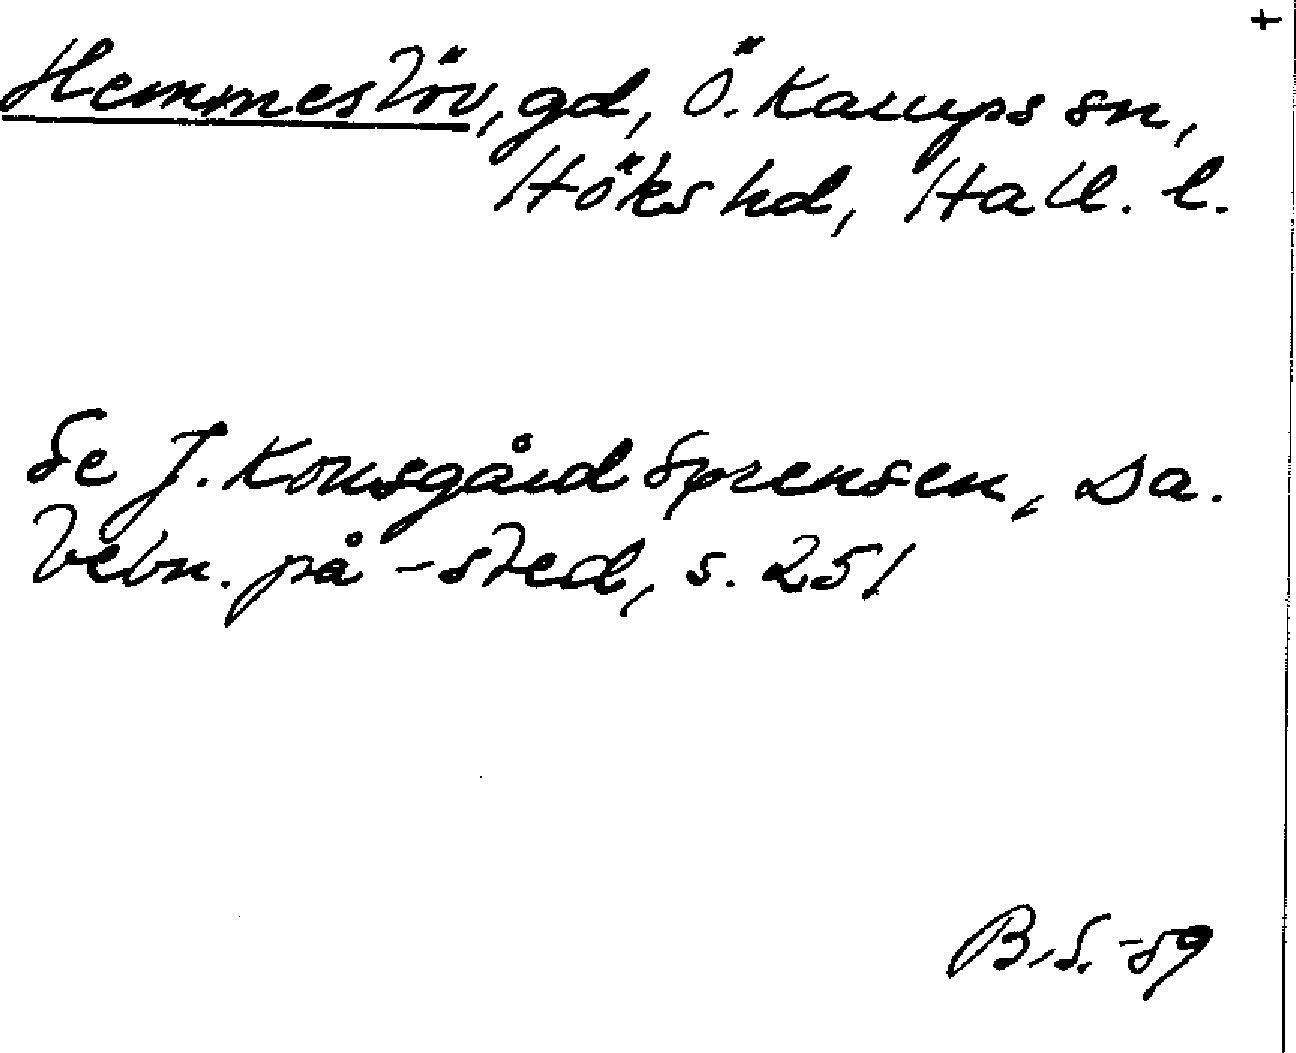 +
Hemmeslöv, gd, Ö. Karups sn,
Höks hd, Hall. l.
Se J. Kousgård Sørensen, Da.
bebn. på -sted, s. 251
B.S. -59